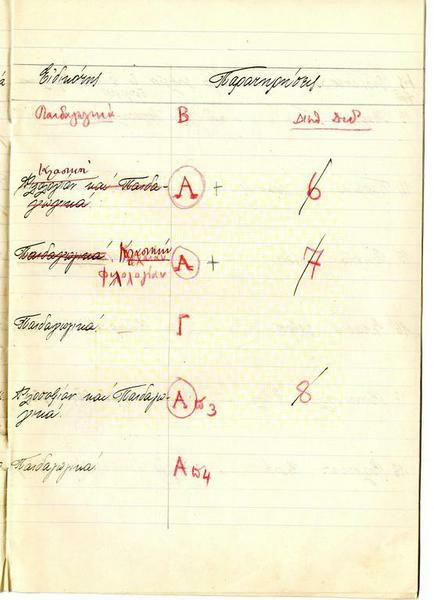 Εἰδικότης Παρατηρήσεις
Παιδαγωγικά Β Διπλ. Διδ
Κλασικὴ
Φιλοσοφίαν καὶ Παιδα- Α + 6
γωγικά.
Παιδαγωγικά. Κλασικὴν Α + 7
φιλολογίαν
Παιδαγωγικά. Γ
Φιλοσοφίαν καὶ Παιδαγω- Α 3 8
γικά.
Παιδαγωγικά Α 4